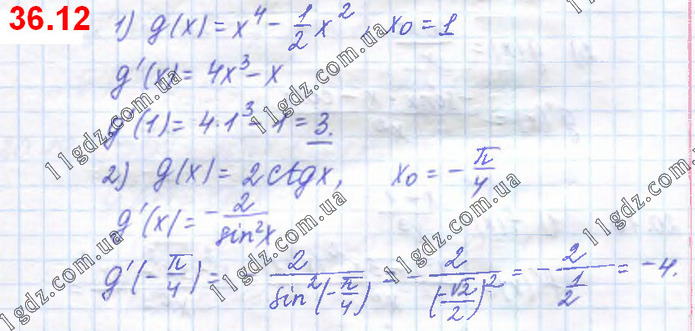 36.12
1) g(x) = x⁴ - 1/2 x², x₀ = 1
g'(x) = 4x³ - x
g'(1) = 4·1³ - 1 = 3.
2) g(x) = 2ctgx, x₀ = -π/4
g'(x) = -2/sin²x
g'(-π/4) = -2/sin²(-π/4) = -2/(-√2/2)² = -2/(1/2) = -4.
11gdz.com.ua
11gdz.com.ua
11gdz.com.ua
11gdz.com.ua
11gdz.com.ua
11gdz.com.ua